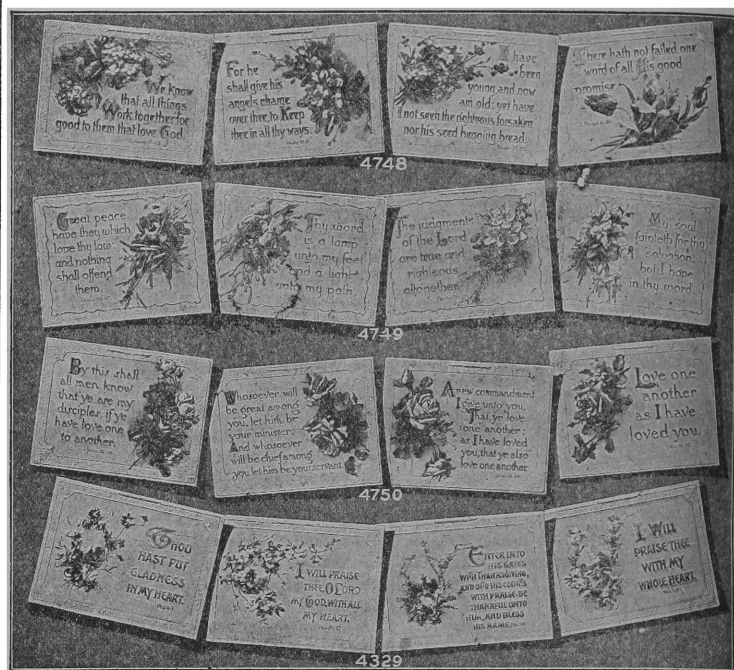 We know
that all things
Work together for
good to them that love God.
For he
shall give his
angels charge
over thee, to Keep
thee in all thy ways.
I have
been
young, and now
am old; yet have
I not seen the righteous forsaken
nor his seed begging bread.
There hath not failed one
word of all His good
promise
4748
Great peace
have they which
love thy law:
and nothing
shall offend
them.
Thy word
is a lamp
unto my feet
and a light
unto my path.
The judgments
of the Lord
are true and
righteous
altogether.
My soul
fainteth for thy
salvation:
but I hope
in thy word.
4749
By this shall
all men know
that ye are my
disciples, if ye
have love one
to another.
Whosoever will
be great among
you, let him be
your minister:
And whosoever
will be chief among
you, let him be your servant.
A new commandment
I give unto you,
That ye love
one another;
as I have loved
you, that ye also
love one another.
Love one
another
as I have
loved you.
4750
THOU
HAST PUT
GLADNESS
IN MY HEART.
I WILL PRAISE
THEE, O LORD
MY GOD, WITH ALL
MY HEART.
ENTER INTO
HIS GATES
WITH THANKSGIVING,
AND INTO HIS COURTS
WITH PRAISE: BE
THANKFUL UNTO
HIM, AND BLESS
HIS NAME.
I WILL
PRAISE THEE
WITH MY
WHOLE HEART.
4329